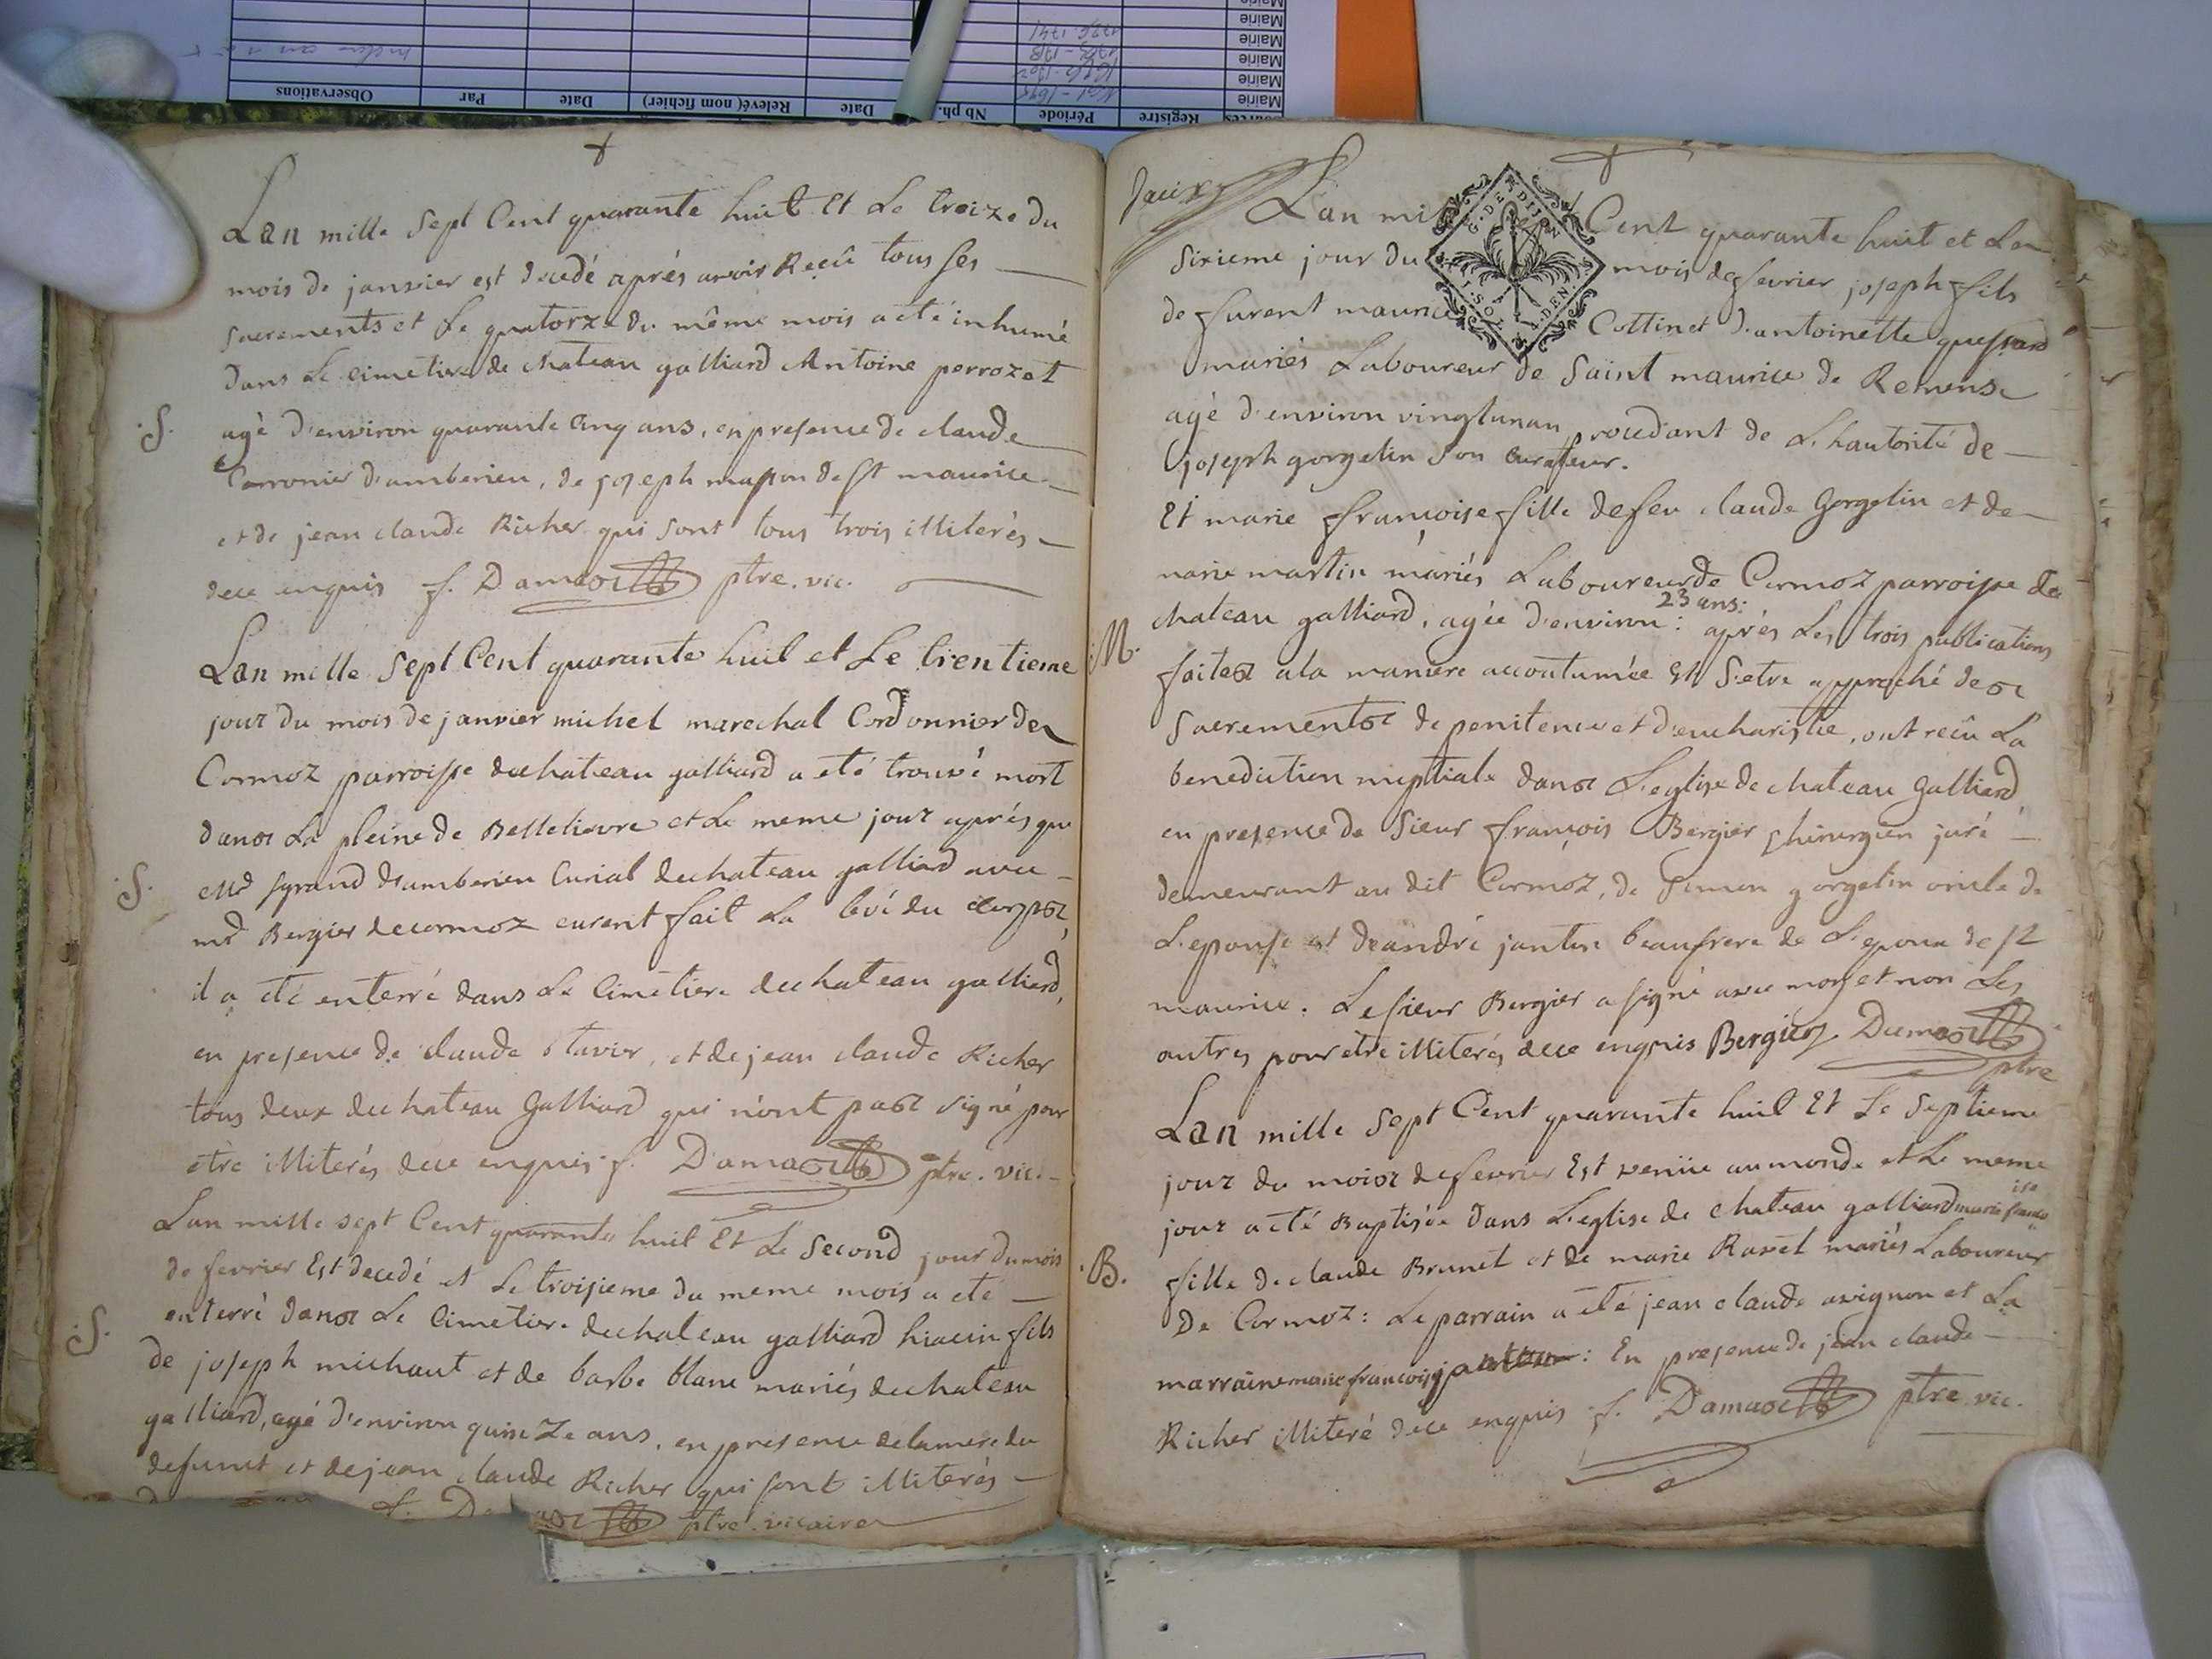 Observations
Par
Date
Relevé( nom fichier)
Date
Nb ph.
Période
Registre
Mairie
Mairie
Mairie
Mairie
Mairie
Lan mille Sept Cent quarante huit Et Le treize du
mois de janvier est decedé aprés avoir Reçû tous ses
sacrements et Le quatorze du même mois a eté inhumé
dans Le cimetiere de chateau galliard Antoine perrozet
.S.
agé d'environ quarante Cinq ans, en presence de claude
d'amberieu, de joseph masson de st maurice
et de jean claude Richer qui sont tous trois illiterés
dece enquis f. Damas ptre. vic.
Lan mille Sept Cent quarante huit et Le trentieme
jour du mois de janvier michel marechal Cordonnier de
Cormoz parroisse dechateau galliard a eté trouvé mort
dans La pleine de Bellelievre et Le meme jour aprés que
.S.
d'amberieu Curial dechateau galliard avec
mr Bergier decormoz eurent fait La levé du corps,
il a eté enterré dans Le Cimetiere dechateau galliard,
en presence de claude Tavier, et de jean claude Richer
tous deux dechateau Galliard qui n'ont pas signé pour
etre illiterés dece enquis f. Damas ptre. vic.
Lan mille sept Cent quarante huit Et Le second jour dumois
de fevrier Est decedé et Le troisieme du meme mois a eté
enterré dans Le Cimetiere dechateau galliard hiacin fils
.S.
de joseph michaut et de barbe blanc mariés dechateau
galliard, agé d'environ quinze ans, en presence delamere du
defunct et dejean claude Richer qui sont illiterés
f. Damas ptre. vicaire
Lan mil Cent quarante huit et Le
sixieme jour du mois de fevrier joseph fils
de furent maurice Cottin et d'antoinette quessard
mariés Laboureur de Saint maurice de Remens
agé d'environ vingtunan procedant de L'hautorité de
joseph gorgelin son Curateur.
Et marie françoise fille defeu claude Gorgelin et de
marie martin mariés Laboureur de Cormoz parroisse de
23 ans:
chateau galliard, agée d'environ: aprés Les trois publications
.M.
faites ala maniere accoutumée Et S'etre approché des
Sacrements de penitence et d'eucharistie, ont reçû La
benediction nuptiale dans L'eglise de chateau Galliard,
en presence de Sieur françois Bergier chirurgien juré
demeurant au dit Cormoz, de Simon gorgelin oncle de
L'epouse et deandré jantin beaufrere de L'epoux de st
maurice. Le sieur Bergier a signé avec moy et non Les
autres pour etre illiterés dece enquis Bergier Damas
ptre
Lan mille Sept Cent quarante huit Et Le Septieme
jour du mois defevrier Est veniie aumonde et Le meme
jour a eté Baptisée dans L'eglise de chateau galliard marie franco
ise
.B.
fille de claude Brunet et de marie Ravet mariés Laboureur
De Cormoz: Le parrain a eté jean claude avignon et La
marraine marie françoise : En presence de jean claude
Richer illiteré dece enquis f. Damas ptre. vic.